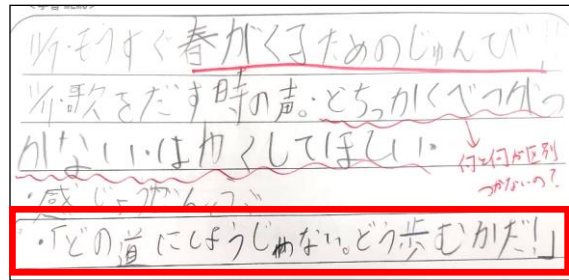 ツバ・もうすぐ春がくるためのじゅんび、
ツバ・歌をだす時の声。・とちっかくべつがつ
かない・はやくしてほしい・
何と何が区別
つかないの?
・「どの道にしようじゃない。どう歩むかだ!」